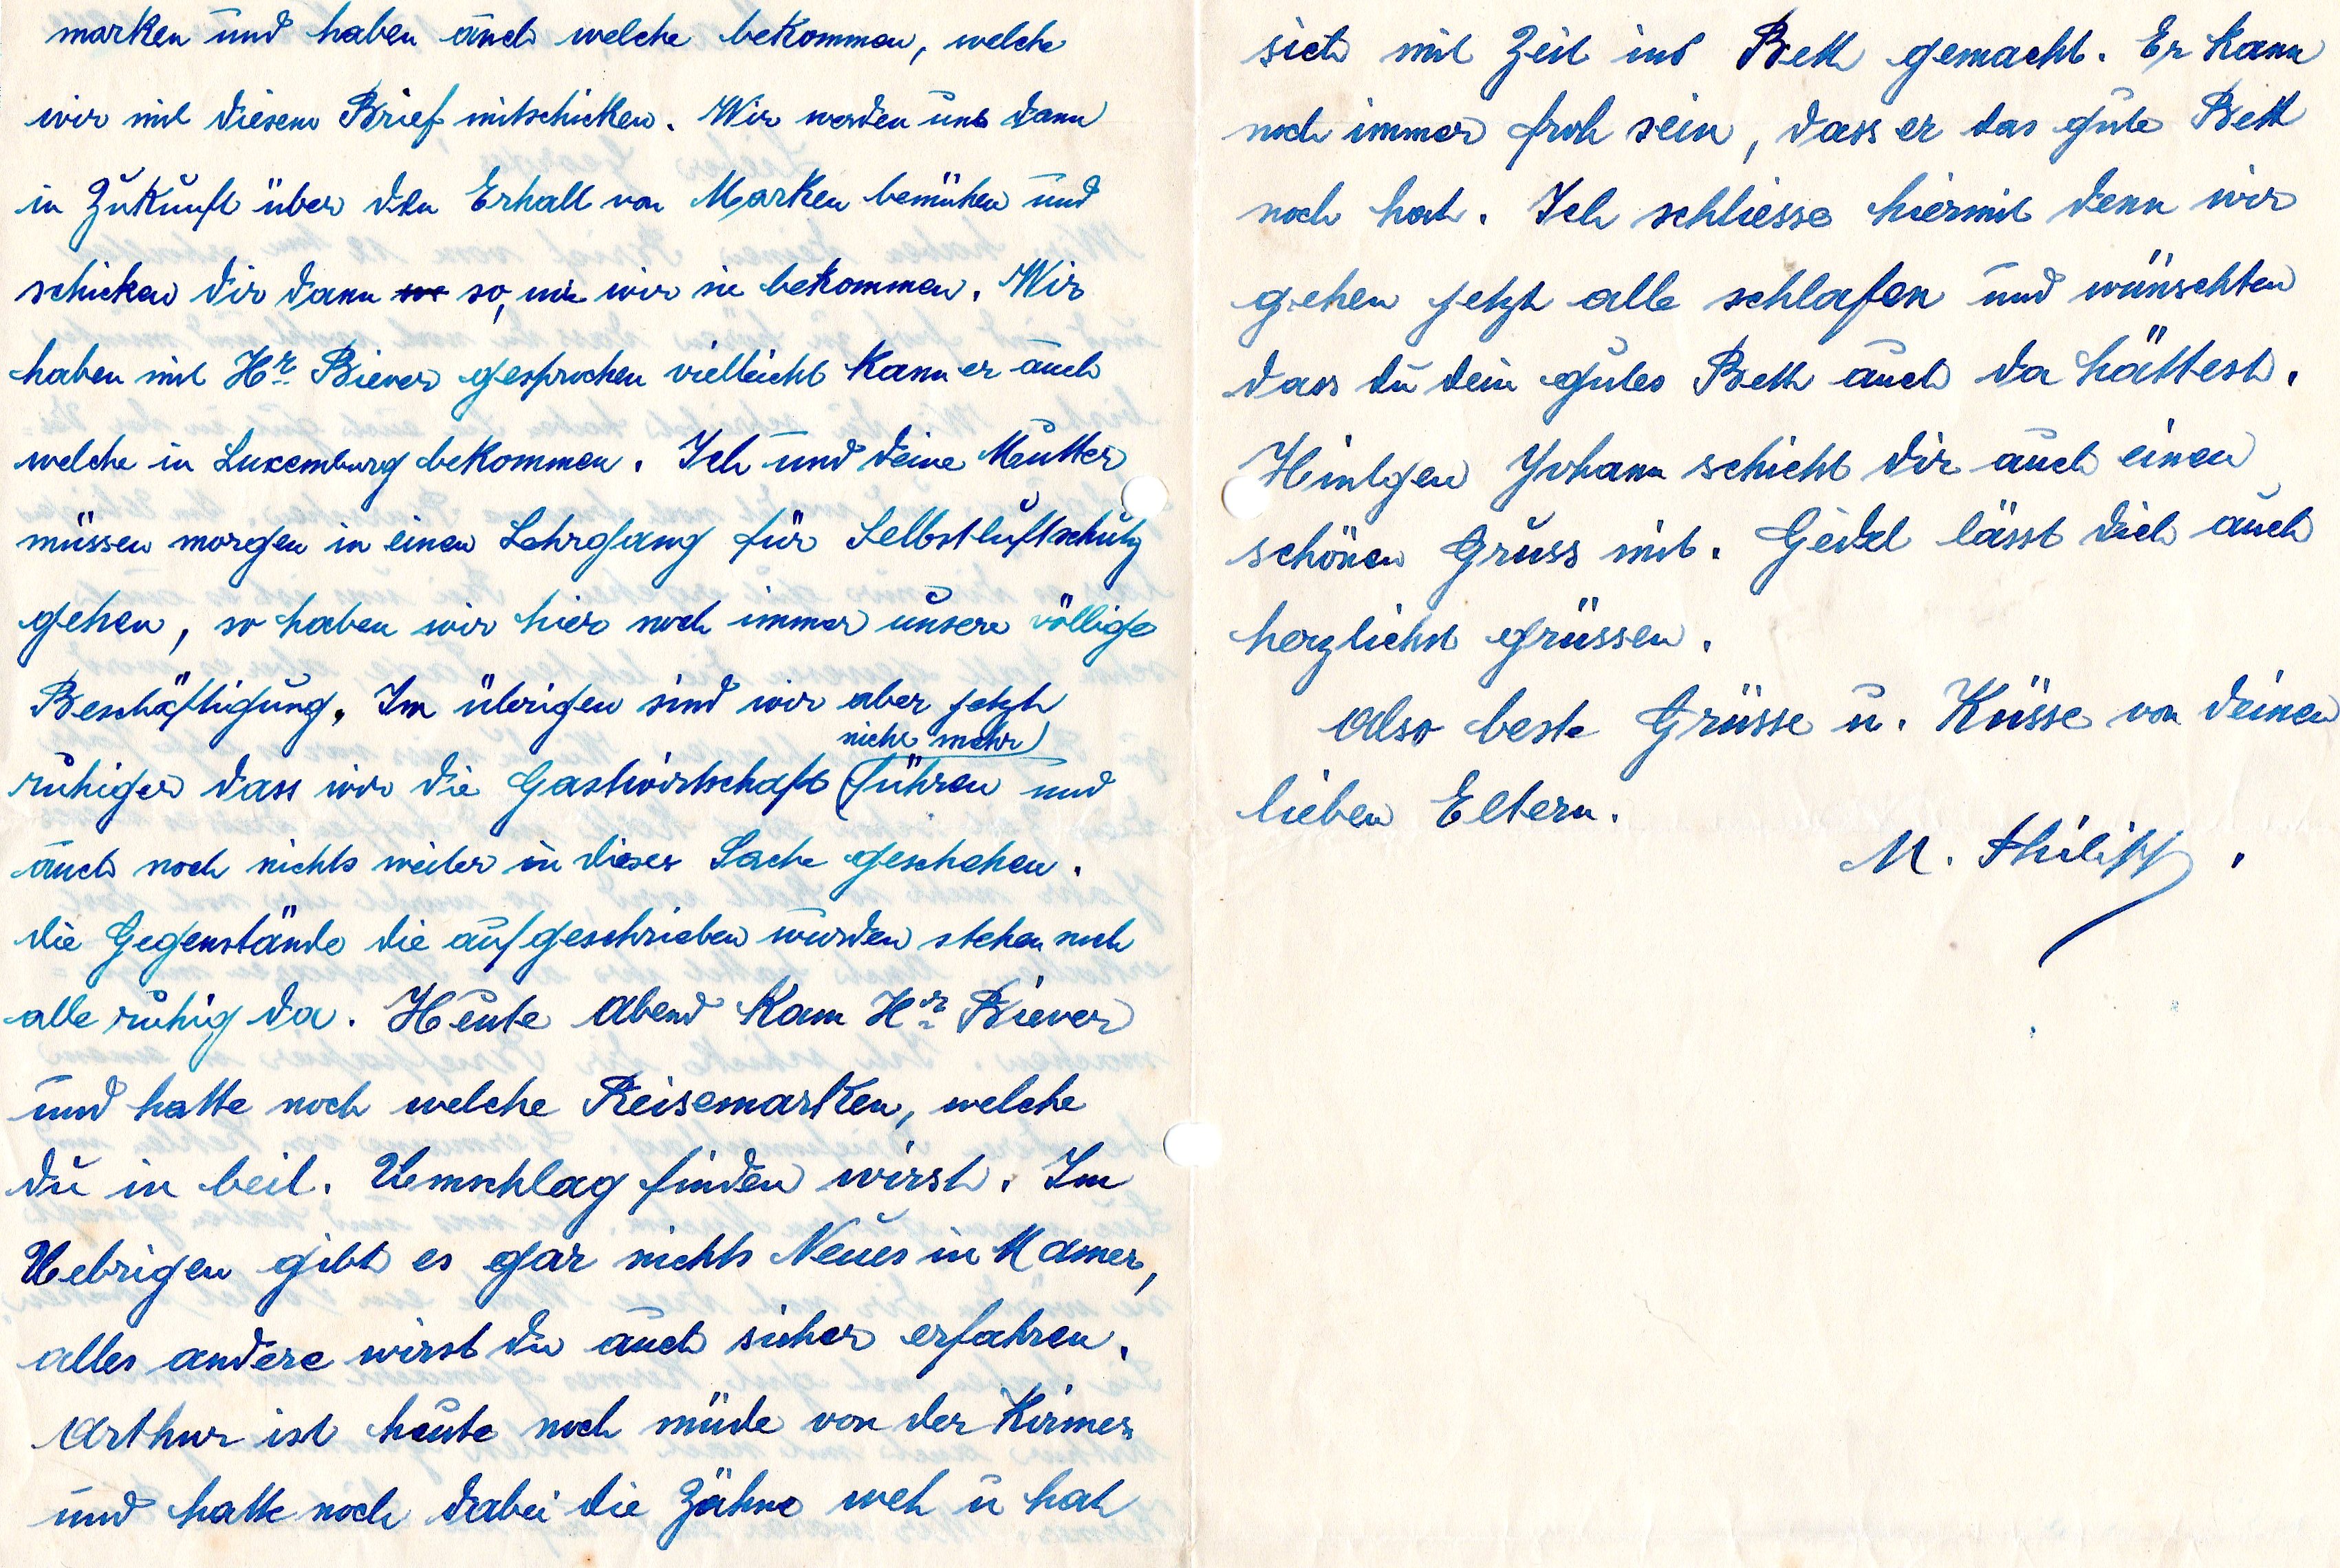 marken und haben auch welche bekommen, welche
wir mit diesem Brief mitschicken. Wir werden uns dann
in Zukunft über den Erhalt von Marken bemühen und
schicken dir dann so, wie wir sie bekommen. Wir
haben mit Hr. Biever gesprochen vielleicht kann er auch
welche in Luxemburg bekommen. Ich und deine Mutter
müssen morgen in einen Lehrgang für Selbstluftschutz
gehen, so haben wir hier noch immer unsere völlige
Beschäftigung. Im übrigen sind wir aber jetzt
nicht mehr
ruhiger dass wir die Gastwirtschaft führen und
auch noch nichts weiter in dieser Sache geschehen.
die Gegenstände die aufgeschrieben wurden stehen noch
alle ruhig da. Heute Abend kam Hr. Biever
und hatte noch welche Reisemarken, welche
du in beil. Umschlag finden wirst. Im
Uebrigen gibt es gar nichts Neues in Mamer,
alles andere wirst du auch sicher erfahren.
Arthur ist heute noch müde von der Kirmes
und hatte noch dabei die Zähne weh u hat
sich mit Zeit ins Bett gemacht. Er kann
noch immer froh sein, dass er das gute Bett
noch hat. Ich schliesse hiermit denn wir
gehen jetzt alle schlafen und wünschten
dass du dein gutes Bett auch da hättest.
Hintgen Johann schickt dir auch einen
schönen Gruss mit. Gedel lässt dich auch
herzlichst grüssen.
Also beste Grüsse u. Küsse von deinen
lieben Eltern.
M. Philipp.